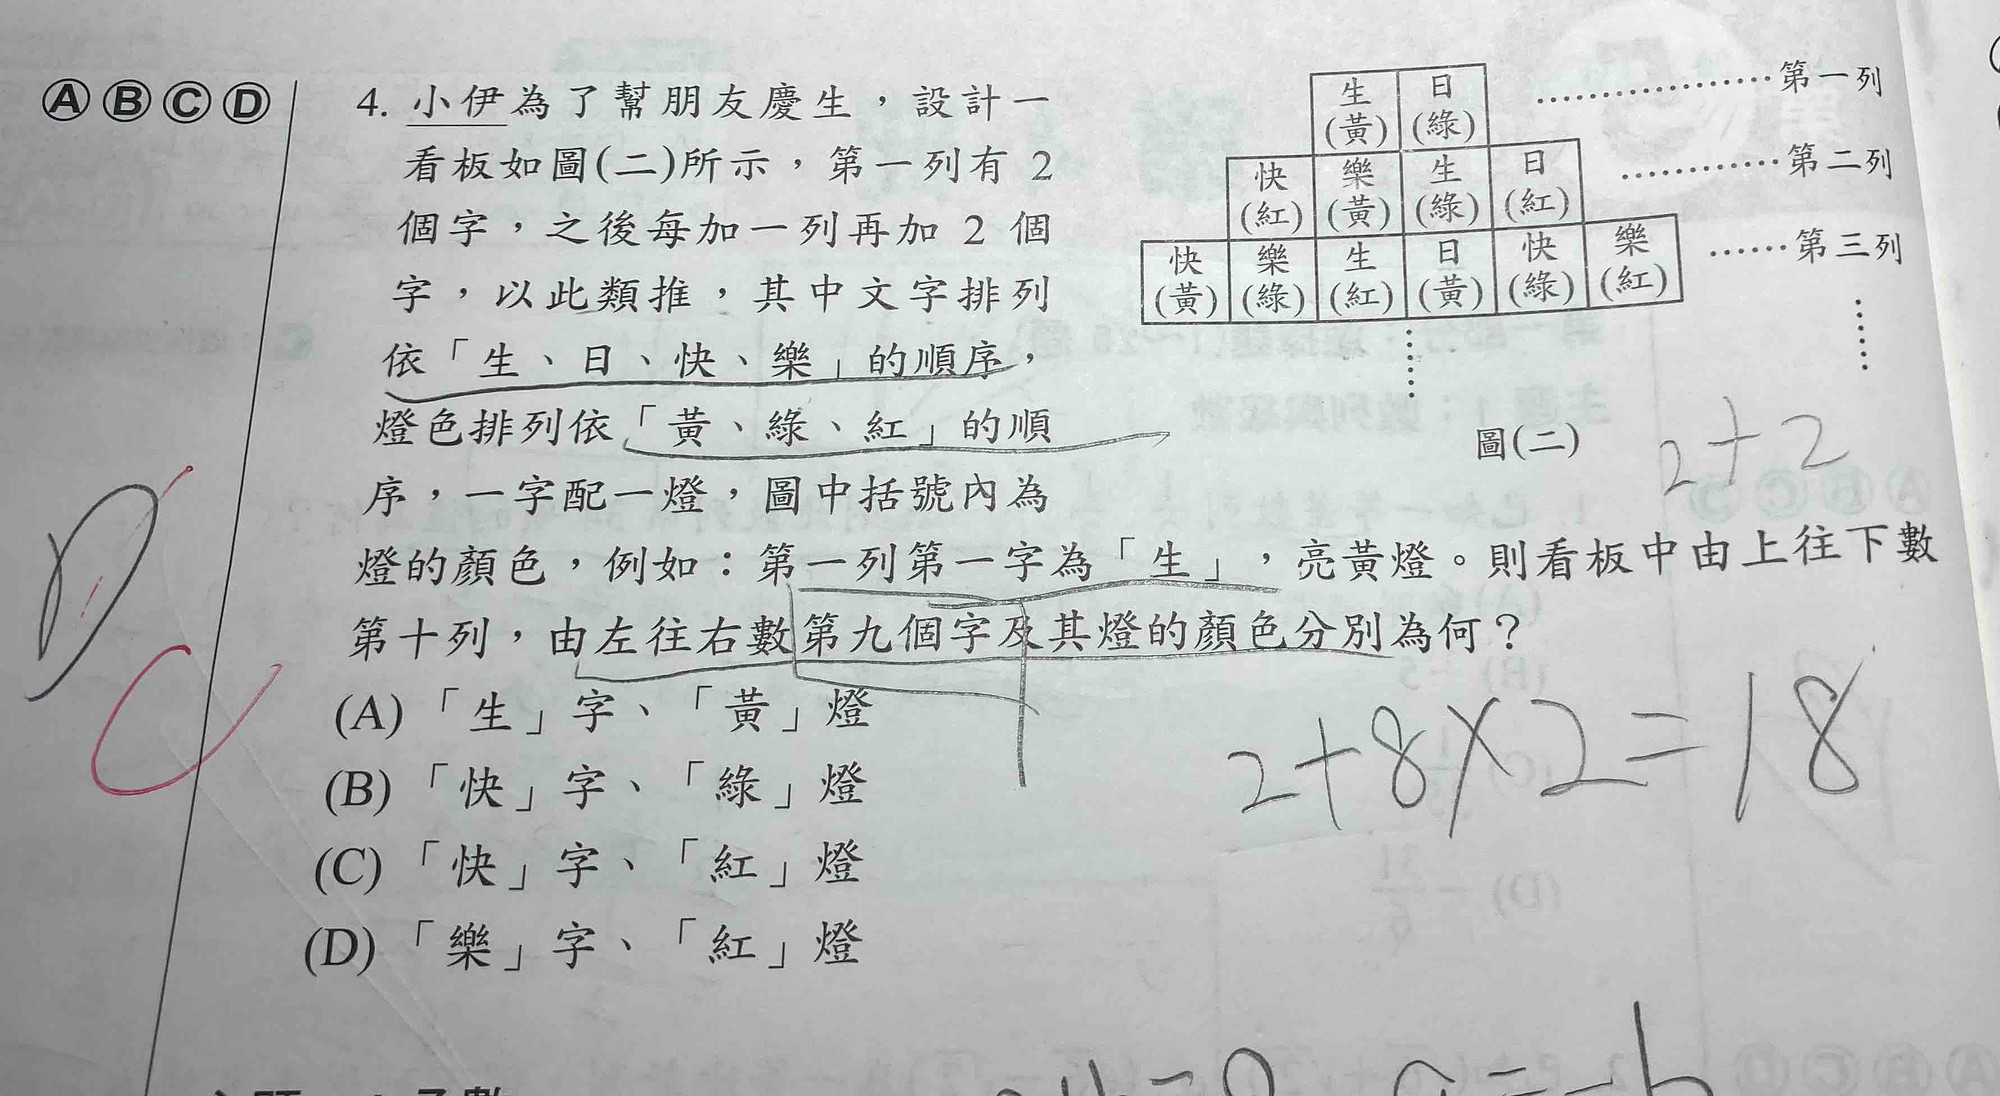 Ⓐ Ⓑ Ⓒ Ⓓ
4. 小伊為了幫朋友慶生，設計一
看板如圖(二)所示，第一列有 2
個字，之後每加一列再加 2 個
字，以此類推，其中文字排列
依「生、日、快、樂」的順序，
燈色排列依「黃、綠、紅」的順
序，一字配一燈，圖中括號內為
燈的顏色，例如：第一列第一字為「生」，亮黃燈。則看板中由上往下數
第十列，由左往右數第九個字及其燈的顏色分別為何？
(A)「生」字、「黃」燈
(B)「快」字、「綠」燈
(C)「快」字、「紅」燈
(D)「樂」字、「紅」燈
生 日 ………………第一列
(黃) (綠)
快 樂 生 日 …………第二列
(紅) (黃) (綠) (紅)
快 樂 生 日 快 樂 ……第三列
(黃) (綠) (紅) (黃) (綠) (紅)
圖(二)
2+2
2+8×2=18
D
C